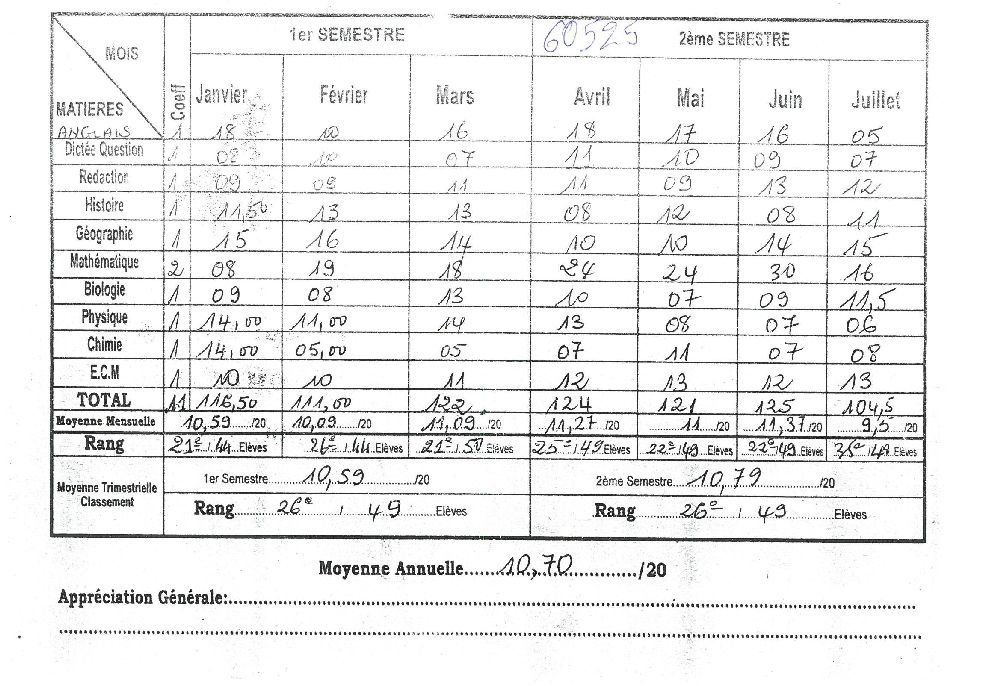 1er SEMESTRE 60525 2ème SEMESTRE
MOIS
MATIERES Coeff Janvier Février Mars Avril Mai Juin Juillet
ANGLAIS 1 18 10 16 18 17 16 05
Dictée Question 1 08 10 07 11 10 09 07
Redaction 1 09 09 11 11 09 13 12
Histoire 1 11,50 13 13 08 12 08 11
Géographie 1 15 16 14 10 10 14 15
Mathématique 2 08 19 18 24 24 30 16
Biologie 1 09 08 13 10 07 09 11,5
Physique 1 14,00 11,00 14 13 08 07 06
Chimie 1 14,00 05,00 05 07 11 07 08
E.C.M 1 10 10 11 12 13 12 13
TOTAL 11 116,50 111,00 122 124 121 125 104,5
Moyenne Mensuelle 10,59 /20 10,09 /20 11,09 /20 11,27 /20 11 /20 11,37 /20 9,5 /20
Rang 21e 44 Elèves 26e 44 Elèves 21e 50 Elèves 25e 49 Elèves 22e 49 Elèves 22e 49 Elèves 35e 49 Elèves
Moyenne Trimestrielle
Classement
1er Semestre 10,59 /20 2ème Semestre 10,79 /20
Rang 26e 49 Elèves Rang 26e 49 Elèves
Moyenne Annuelle 10,70 /20
Appréciation Générale: